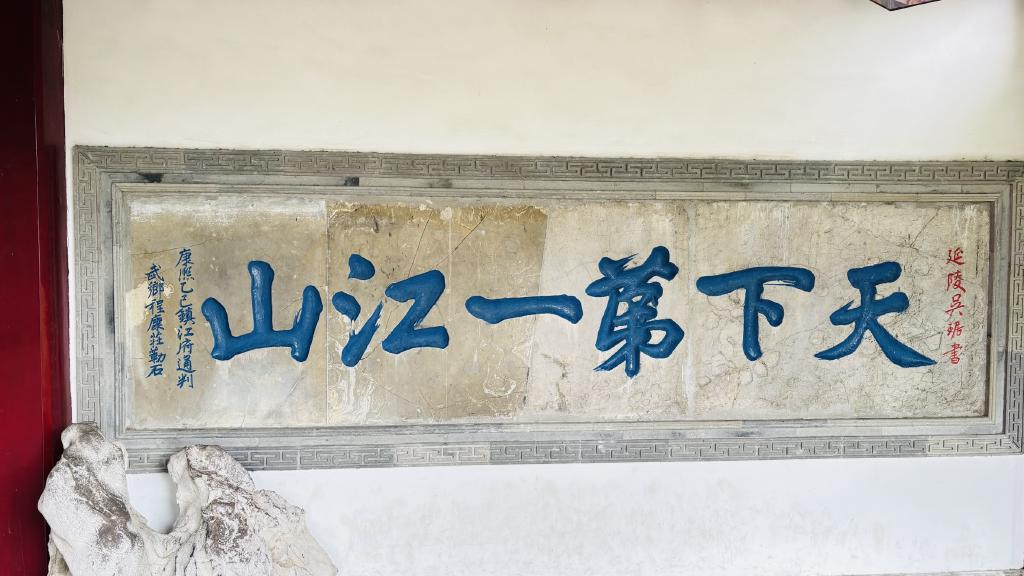 延陵吴琚書
天下第一江山
康熙乙巳鎮江府通判
武鄉程康莊勒石